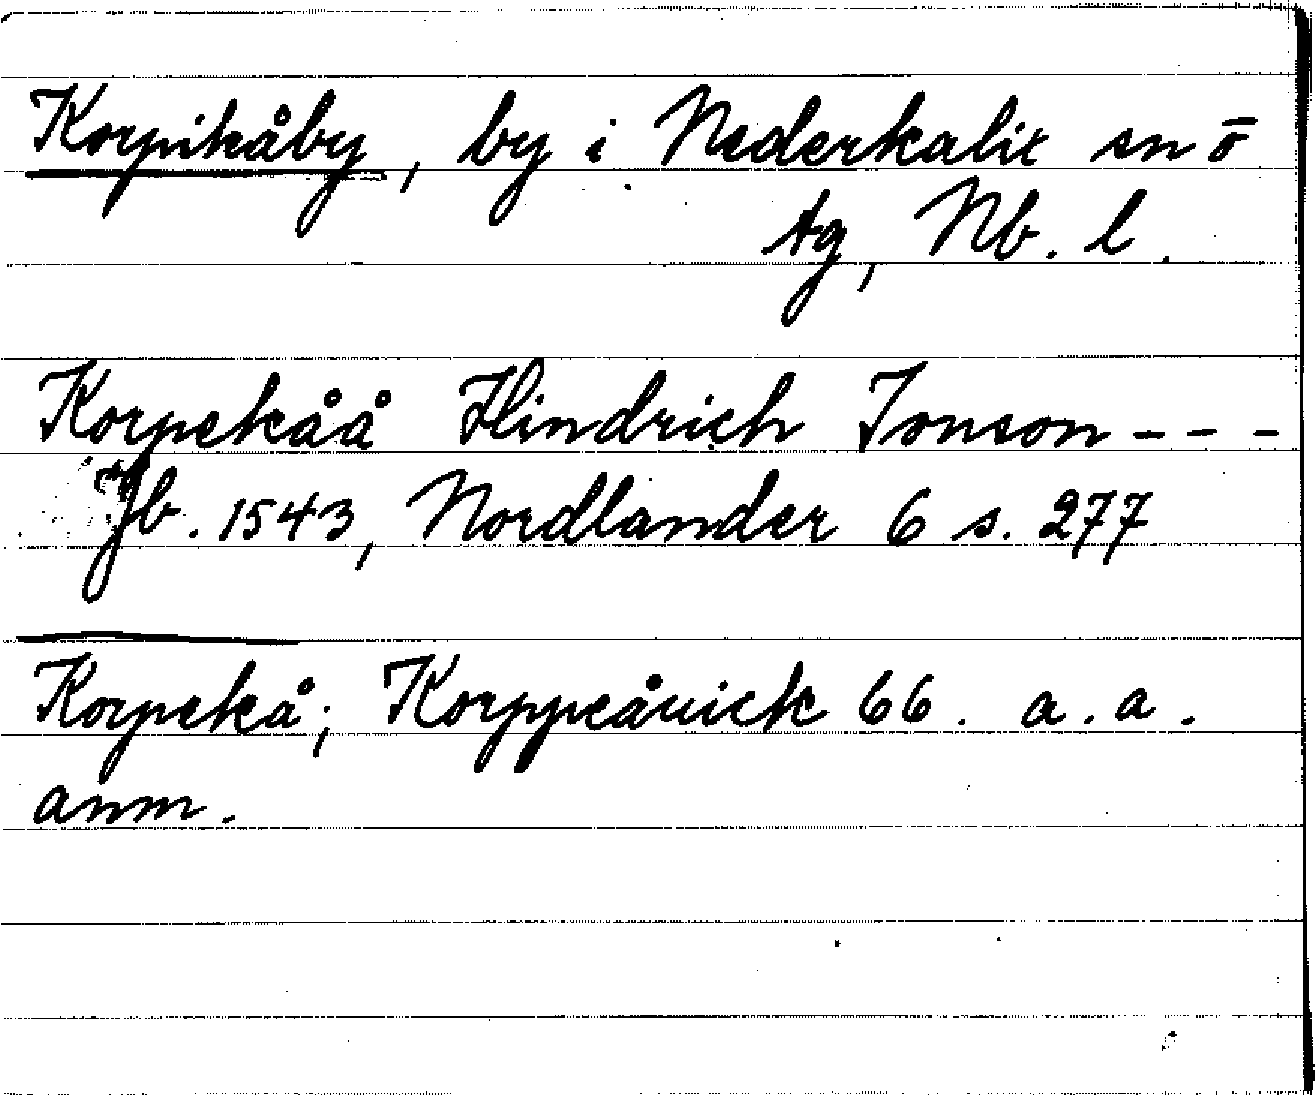 Korpikåby, by i Nederkalix sn ö
tg, Nb. l.
Korpekåå Hindrich Jonson - - -
Jb. 1543, Nordlander 6 s. 277
Korpekå; Korppeåuick 66. a. a.
anm.